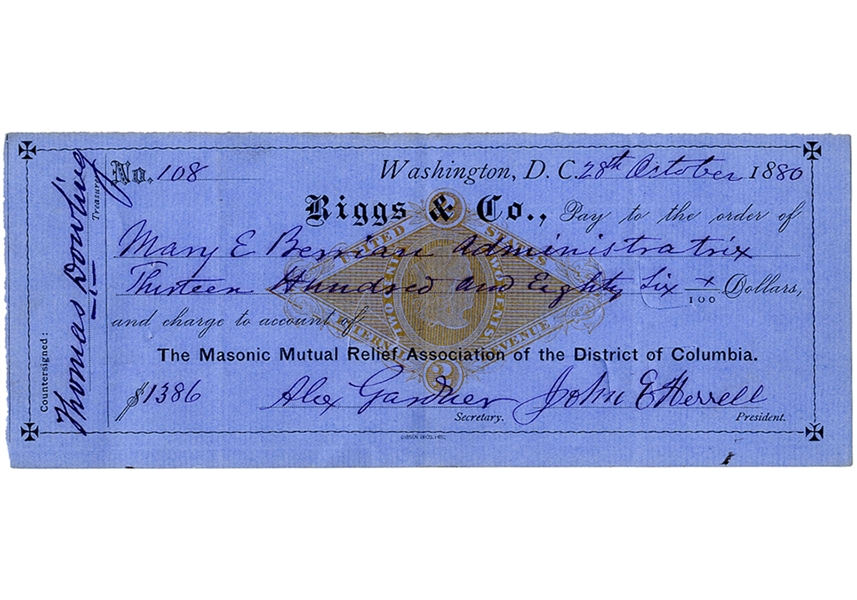 No. 108 Washington, D. C. 28th October 1880
Riggs & Co., Pay to the order of
Mary E Berrian Administratrix
Thirteen Hundred and Eighty Six x/100 Dollars,
and charge to account of
The Masonic Mutual Relief Association of the District of Columbia.
$1386 Alex Gardner John E Herrell
Secretary. President.
Countersigned:
Thomas Dowling
Treasurer
UNITED STATES
INTERNAL REVENUE
TWO CENTS
2